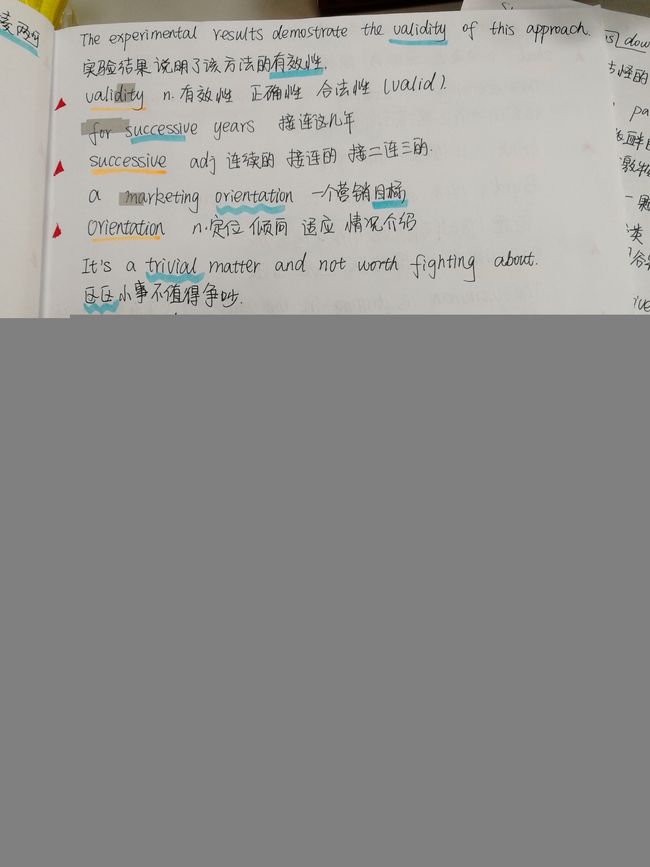 The experimental results demostrate the validity of this approach.
实验结果说明了该方法的有效性.
validity n. 有效性 正确性 合法性 (valid).
for successive years 接连这几年
successive adj 连续的 接连的 接二连三的.
a marketing orientation 一个营销目标
orientation n.定位 倾向 适应 情况介绍
It's a trivial matter and not worth fighting about.
区区小事不值得争吵.